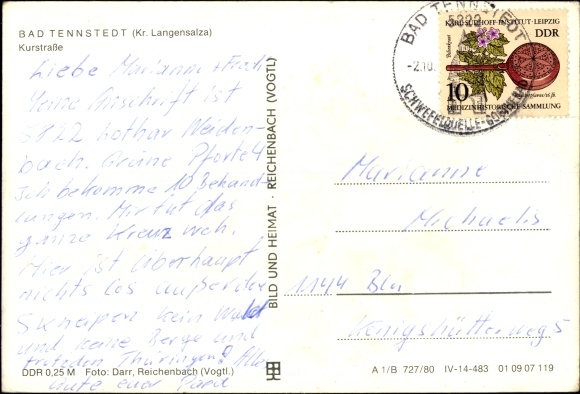 BAD TENNSTEDT (Kr. Langensalza)
Kurstraße
Liebe Marianne + Fredi
Meine Anschrift ist
5822 Lothar Weiden-
bach. Grüne Pforte 4
Ich bekomme 10 Behand-
lungen. Mir tut das
ganze Kreuz weh.
Hier ist überhaupt
nichts los außer die
Kneipen kein Wald
und keine Berge und
trotzden Thüringen! Alles
Gute euer
DDR 0,25 M Foto: Darr, Reichenbach (Vogtl.)
BILD UND HEIMAT · REICHENBACH (VOGTL)
BAD TENNSTEDT
-2.10.
SCHWEFELQUELLE
KARL-SUDHOFF-INSTITUT·LEIPZIG
DDR
10
MEDIZINHISTORISCHE-SAMMLUNG
Marianne
Michaelis
1144 Bln
Königshütterweg 5
A 1/B 727/80 IV-14-483 01 09 07 119